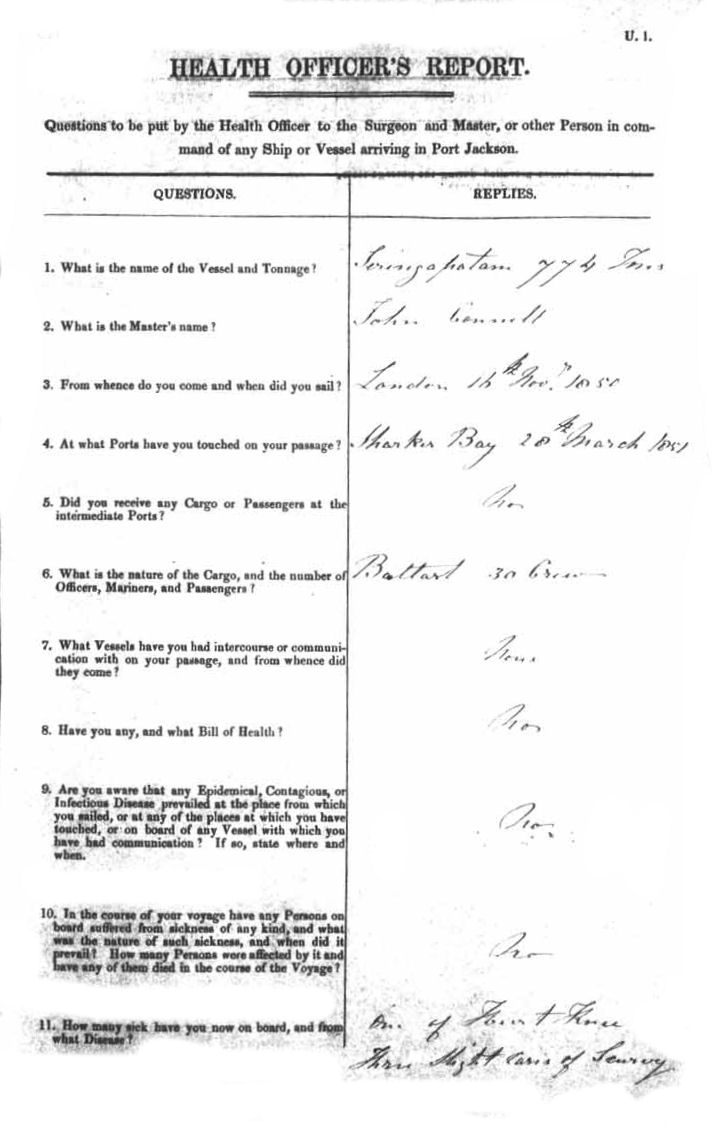 U. 1.
HEALTH OFFICER'S REPORT.
Questions to be put by the Health Officer to the Surgeon and Master, or other Person in com-
mand of any Ship or Vessel arriving in Port Jackson.
QUESTIONS.
REPLIES.
1. What is the name of the Vessel and Tonnage?
Seringapatam 774 Tons
2. What is the Master's name?
John Connell
3. From whence do you come and when did you sail?
London 16th Novr. 1850
4. At what Ports have you touched on your passage?
Sharkes Bay 28th March 1851
5. Did you receive any Cargo or Passengers at the
intermediate Ports?
No
6. What is the nature of the Cargo, and the number of
Officers, Mariners, and Passengers?
Ballast 30 Crew
7. What Vessels have you had intercourse or communi-
cation with on your passage, and from whence did
they come?
None
8. Have you any, and what Bill of Health?
No
9. Are you aware that any Epidemical, Contagious, or
Infectious Disease prevailed at the place from which
you sailed, or at any of the places at which you have
touched, or on board of any Vessel with which you
have had communication? If so, state where and
when.
No
10. In the course of your voyage have any Persons on
board suffered from sickness of any kind, and what
was the nature of such sickness, and when did it
prevail? How many Persons were affected by it and
have any of them died in the course of the Voyage?
No
11. How many sick have you now on board, and from
what Disease?
One of Hurt Knee
Three slight cases of Scurvy